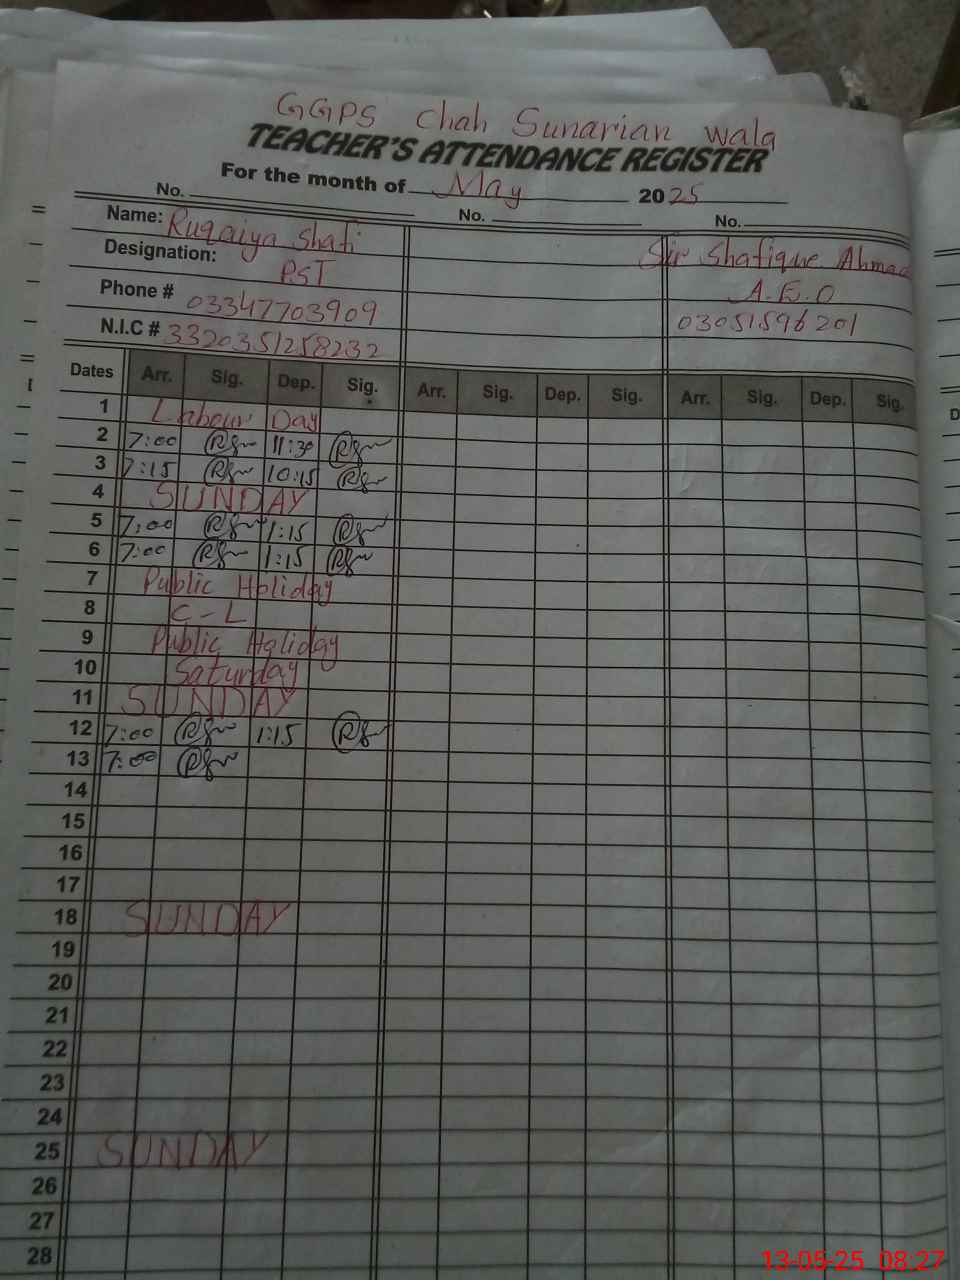 GGPS Chah Sunarian wala
TEACHER'S ATTENDANCE REGISTER
For the month of May 2025
No. No. No.
Name: Ruqaiya Shafi Sir Shafique Ahmad
Designation: PST A.E.O
Phone # 03347703909 03051596201
N.I.C # 3320351258232
Dates Arr. Sig. Dep. Sig. Arr. Sig. Dep. Sig. Arr. Sig. Dep. Sig.
1 Labour Day
2 7:00 11:30
3 7:15 10:15
4 SUNDAY
5 7:00 1:15
6 7:00 1:15
7 Public Holiday
8 C-L
9 Public Holiday
10 Saturday
11 SUNDAY
12 7:00 1:15
13 7:00
14
15
16
17
18 SUNDAY
19
20
21
22
23
24
25 SUNDAY
26
27
28
13-05-25 08:27